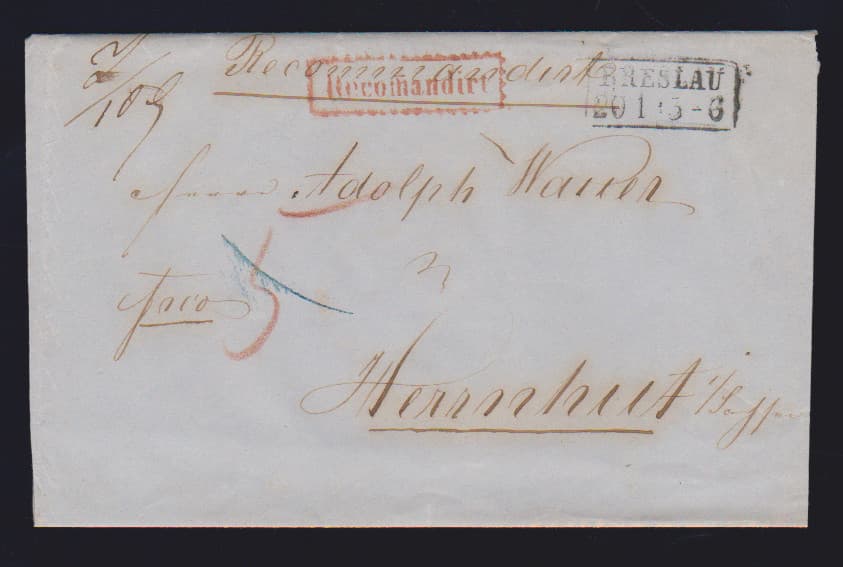 Recommandirt
Recomandirt
BRESLAU
20 1 5-6
Herrn Adolph Wauer
in
frco
Herrnhut i/Sachsen